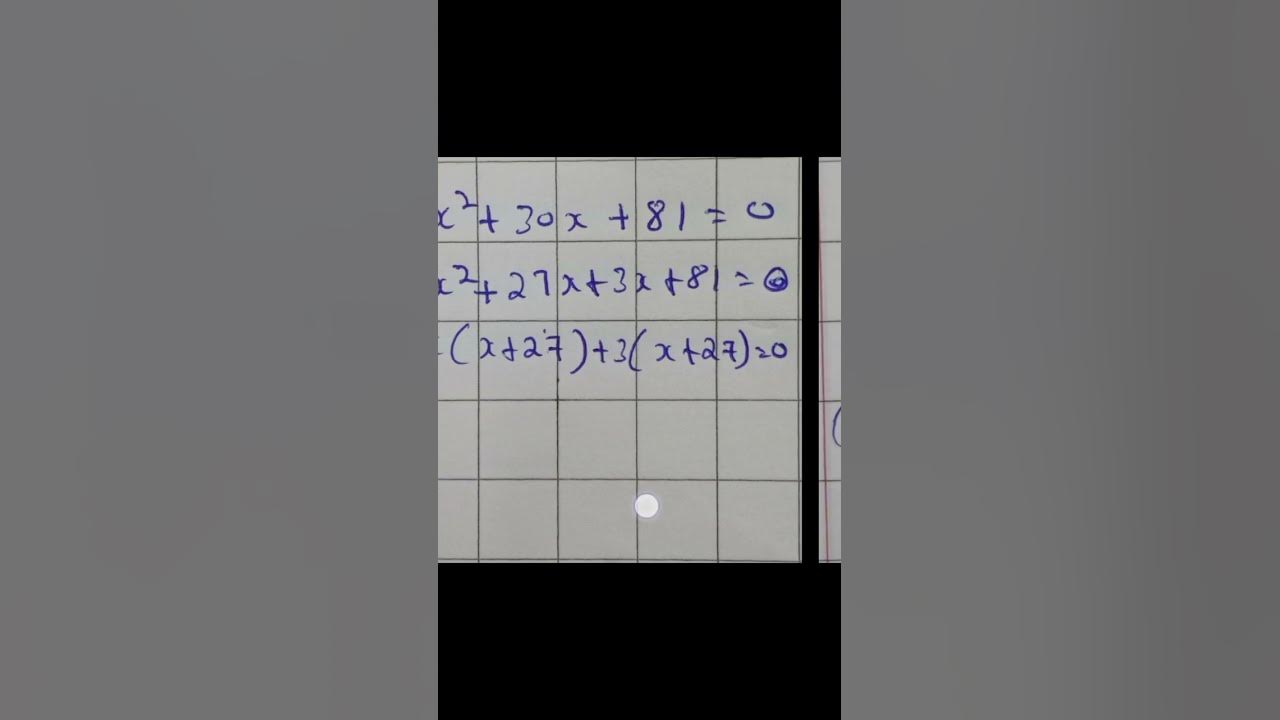 x²+30x+81=0
x²+27x+3x+81=0
(x+27)+3(x+27)=0
(